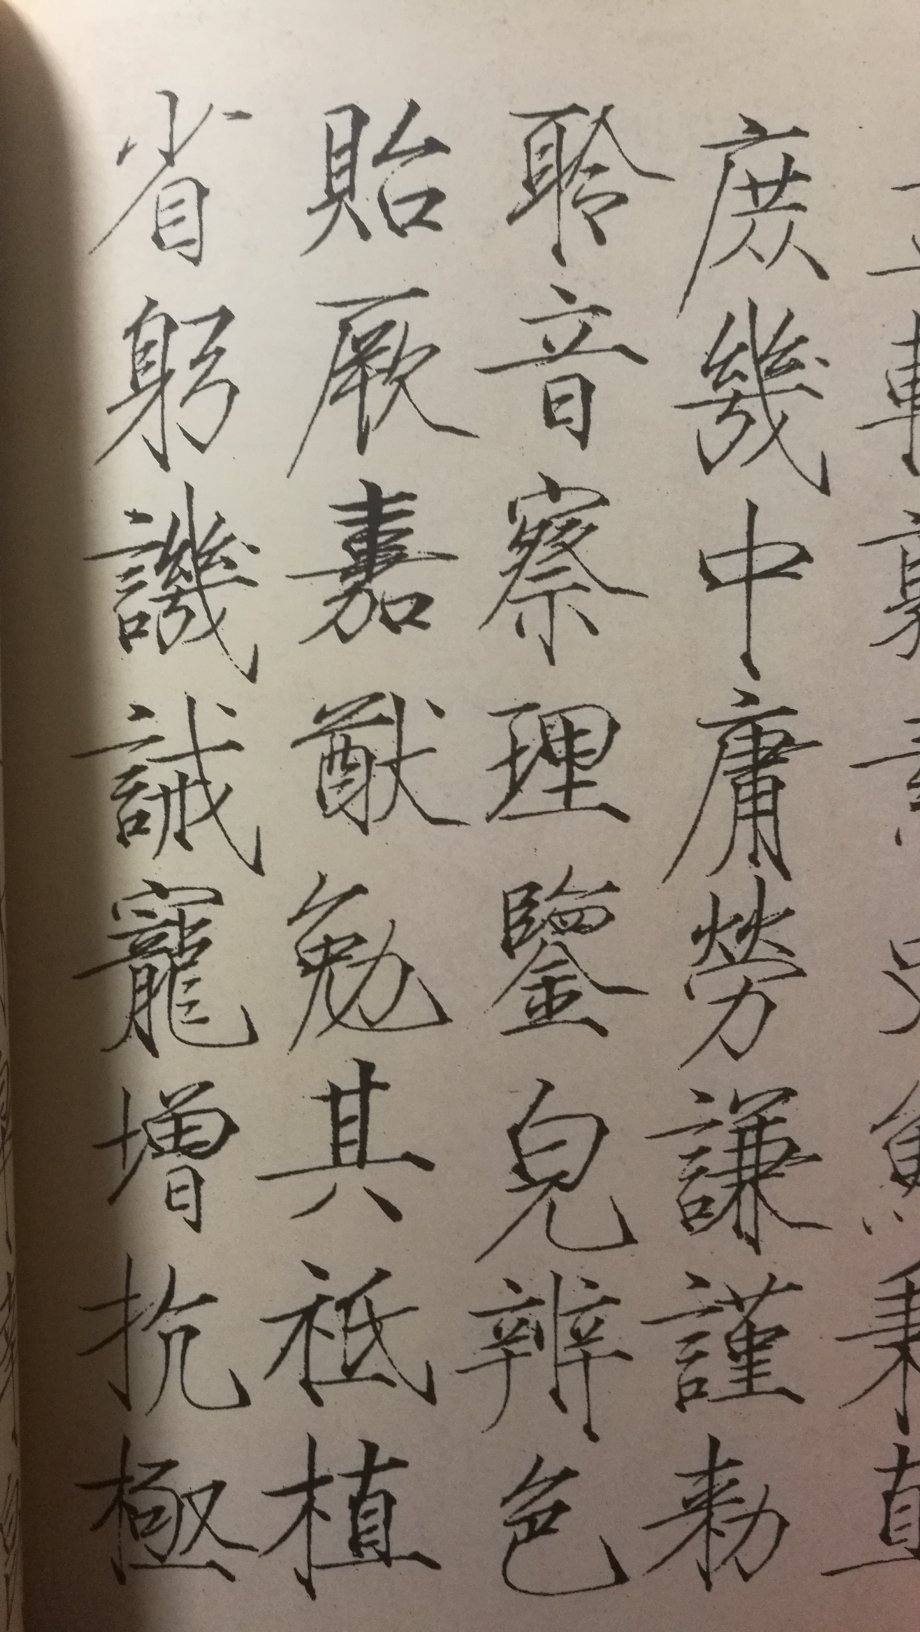 魚秉直
庶幾中庸勞謙謹勑
聆音察理鑒皃辨色
貽厥嘉猷勉其祗植
省躬譏誡寵增抗極